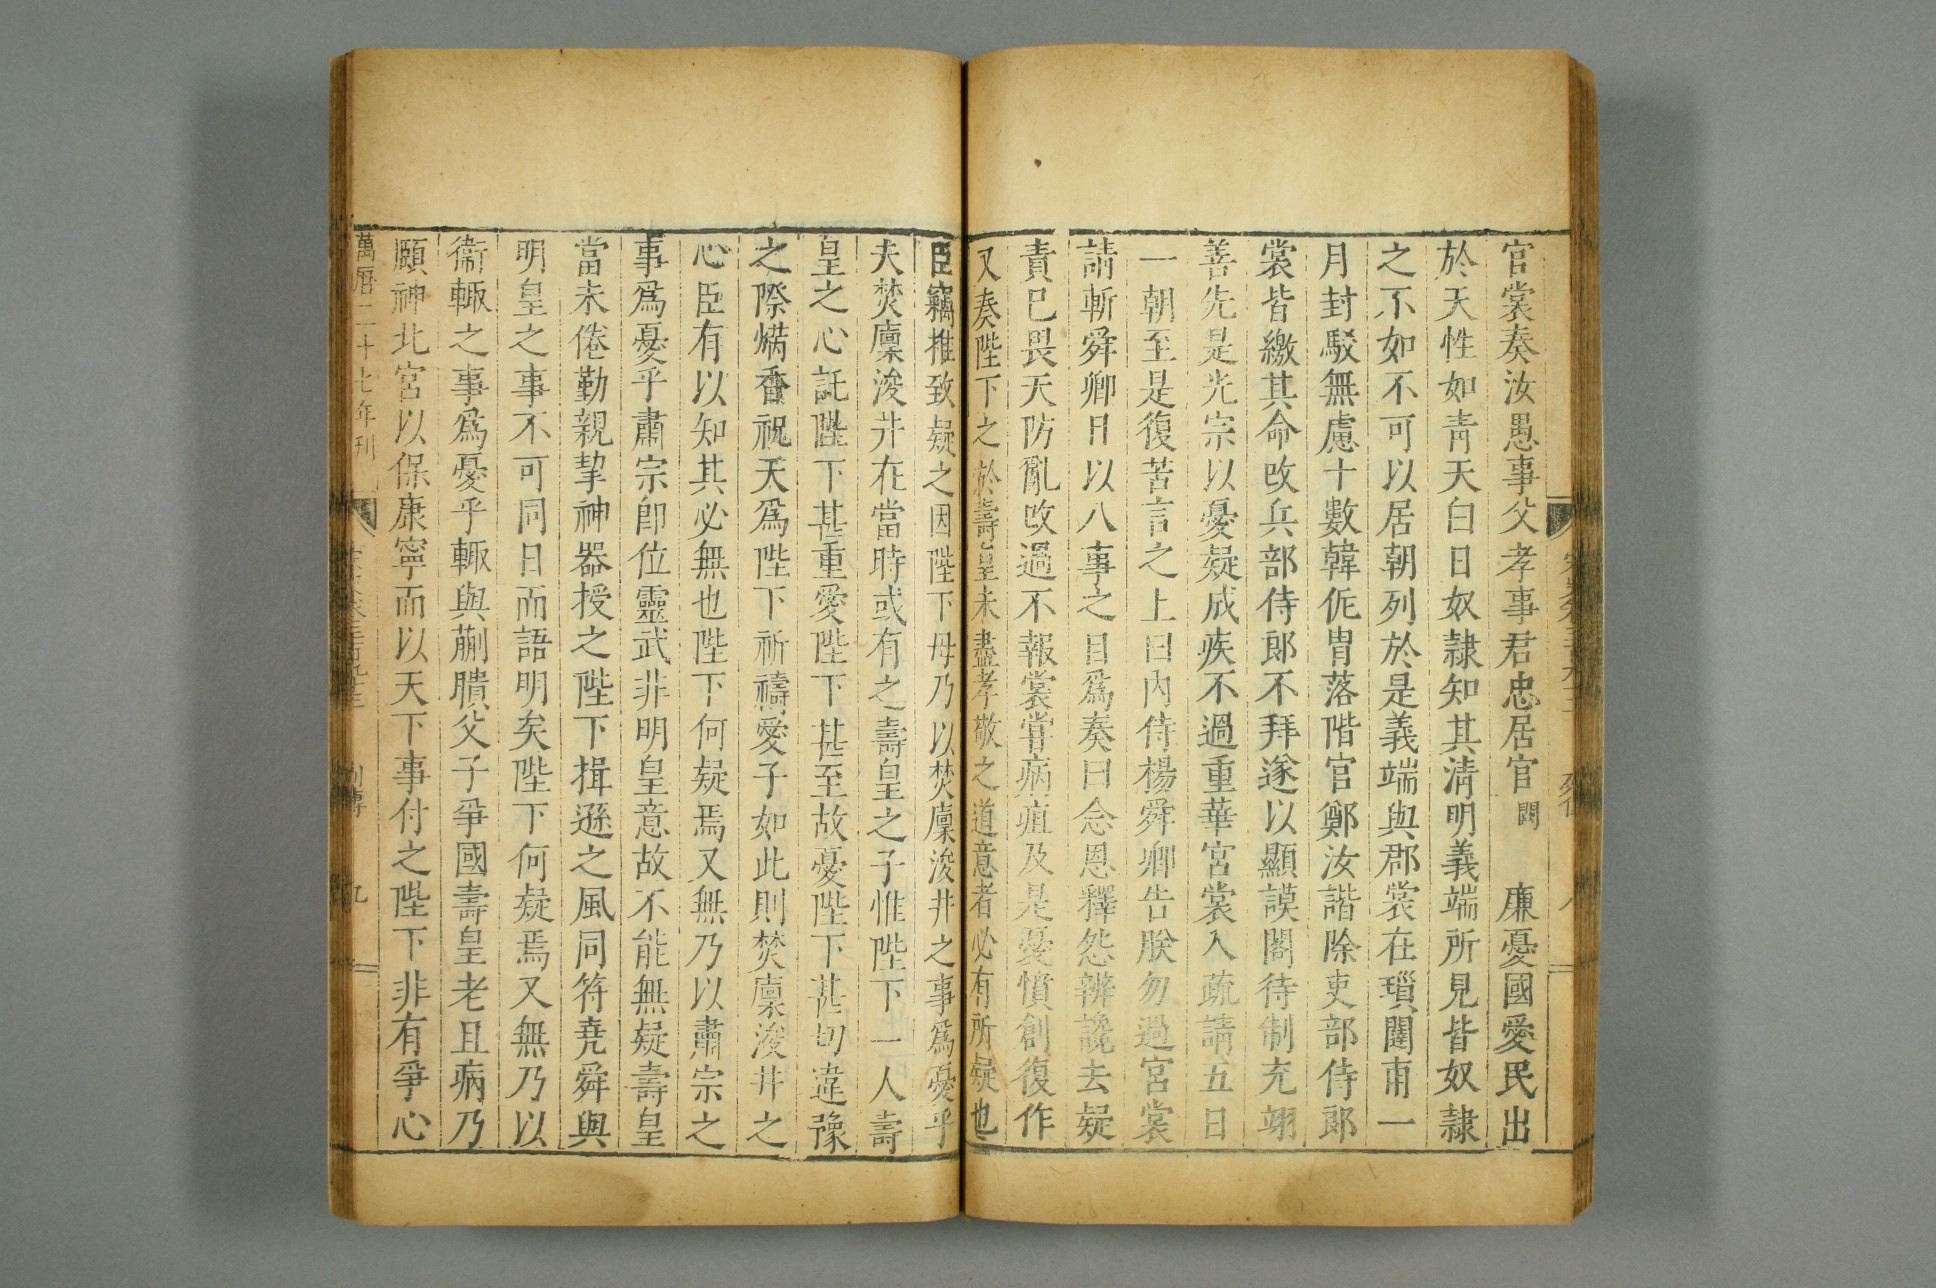 官裳奏汝愚事父孝事君忠居官 闕 廉憂國愛民出
於天性如青天白日奴隷知其淸明義端所見皆奴隷
之不如不可以居朝列於是義端與郡裳在瑣闥甫一
月封駁無慮十數韓侂冑落階官鄭汝諧除吏部侍郞
裳皆繳其命改兵部侍郞不拜遂以顯謨閣待制充翊
善先是光宗以憂疑成疾不過重華宮裳入疏請五日
一朝至是復苦言之上曰内侍楊舜卿告朕勿過宮裳
請斬舜卿且以八事之目爲奏曰念恩釋怨辨讒去疑
責已畏天防亂改過不報裳嘗病疽及是憂憤創復作
又奏陛下之於壽皇未盡孝敬之道意者必有所疑也
臣竊推致疑之因陛下毋乃以焚廩浚井之事爲憂乎
夫焚廩浚井在當時或有之壽皇之子惟陛下一人壽
皇之心託陛下甚重愛陛下甚至故憂陛下甚切違豫
之際爇香祝天爲陛下祈禱愛子如此則焚廩浚井之
心臣有以知其必無也陛下何疑焉又無乃以肅宗之
事爲憂乎肅宗卽位靈武非明皇意故不能無疑壽皇
當未倦勤親挈神器授之陛下揖遜之風同符堯舜與
明皇之事不可同日而語明矣陛下何疑焉又無乃以
衞輒之事爲憂乎輒與蒯聵父子爭國壽皇老且病乃
願神北宮以保康寧而以天下事付之陛下非有爭心
萬曆二十七年刊 列傳 九